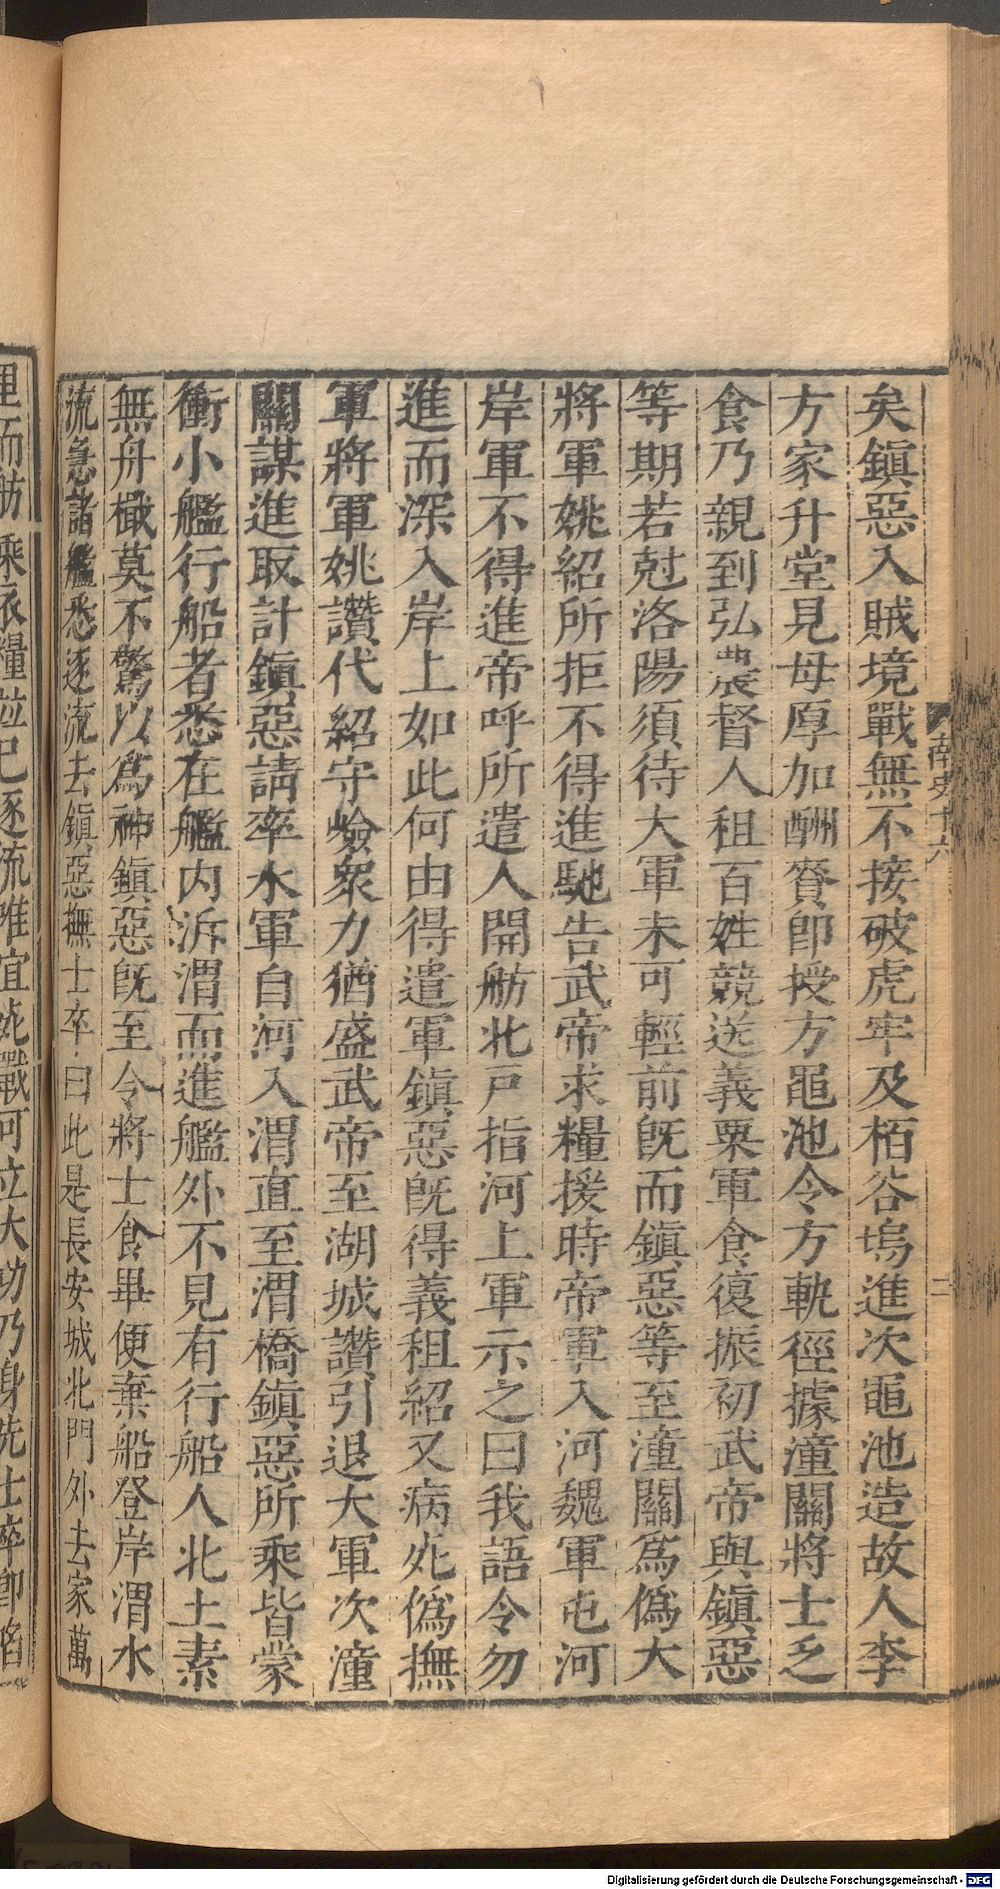 矣鎮惡入賊境戰無不接破虎牢及栢谷塢進次黽池造故人李
方家升堂見母厚加酬賚卽授方黽池令方軌徑據潼關將士乏
食乃親到弘農督人租百姓競送義粟軍食復振初武帝與鎮惡
等期若尅洛陽須待大軍未可輕前旣而鎮惡等至潼關爲僞大
將軍姚紹所拒不得進馳告武帝求糧援時帝軍入河魏軍屯河
岸軍不得進帝呼所遣人開舫北戸指河上軍示之曰我語令勿
進而深入岸上如此何由得遣軍鎮惡旣得義租紹又病死僞撫
軍將軍姚讚代紹守嶮衆力猶盛武帝至湖城讚引退大軍次潼
關謀進取計鎮惡請率水軍自河入渭直至渭橋鎮惡所乘皆蒙
衝小艦行船者悉在艦内泝渭而進艦外不見有行船人北土素
無舟檝莫不驚以爲神鎮惡旣至令將士食畢便棄船登岸渭水
流急諸艦悉逐流去鎮惡撫士卒曰此是長安城北門外去家萬
里而舫乘衣糧並已逐流唯宜死戰可立大功乃身先士卒卽陷
南史十六
二
Digitalisierung gefördert durch die Deutsche Forschungsgemeinschaft - DFG